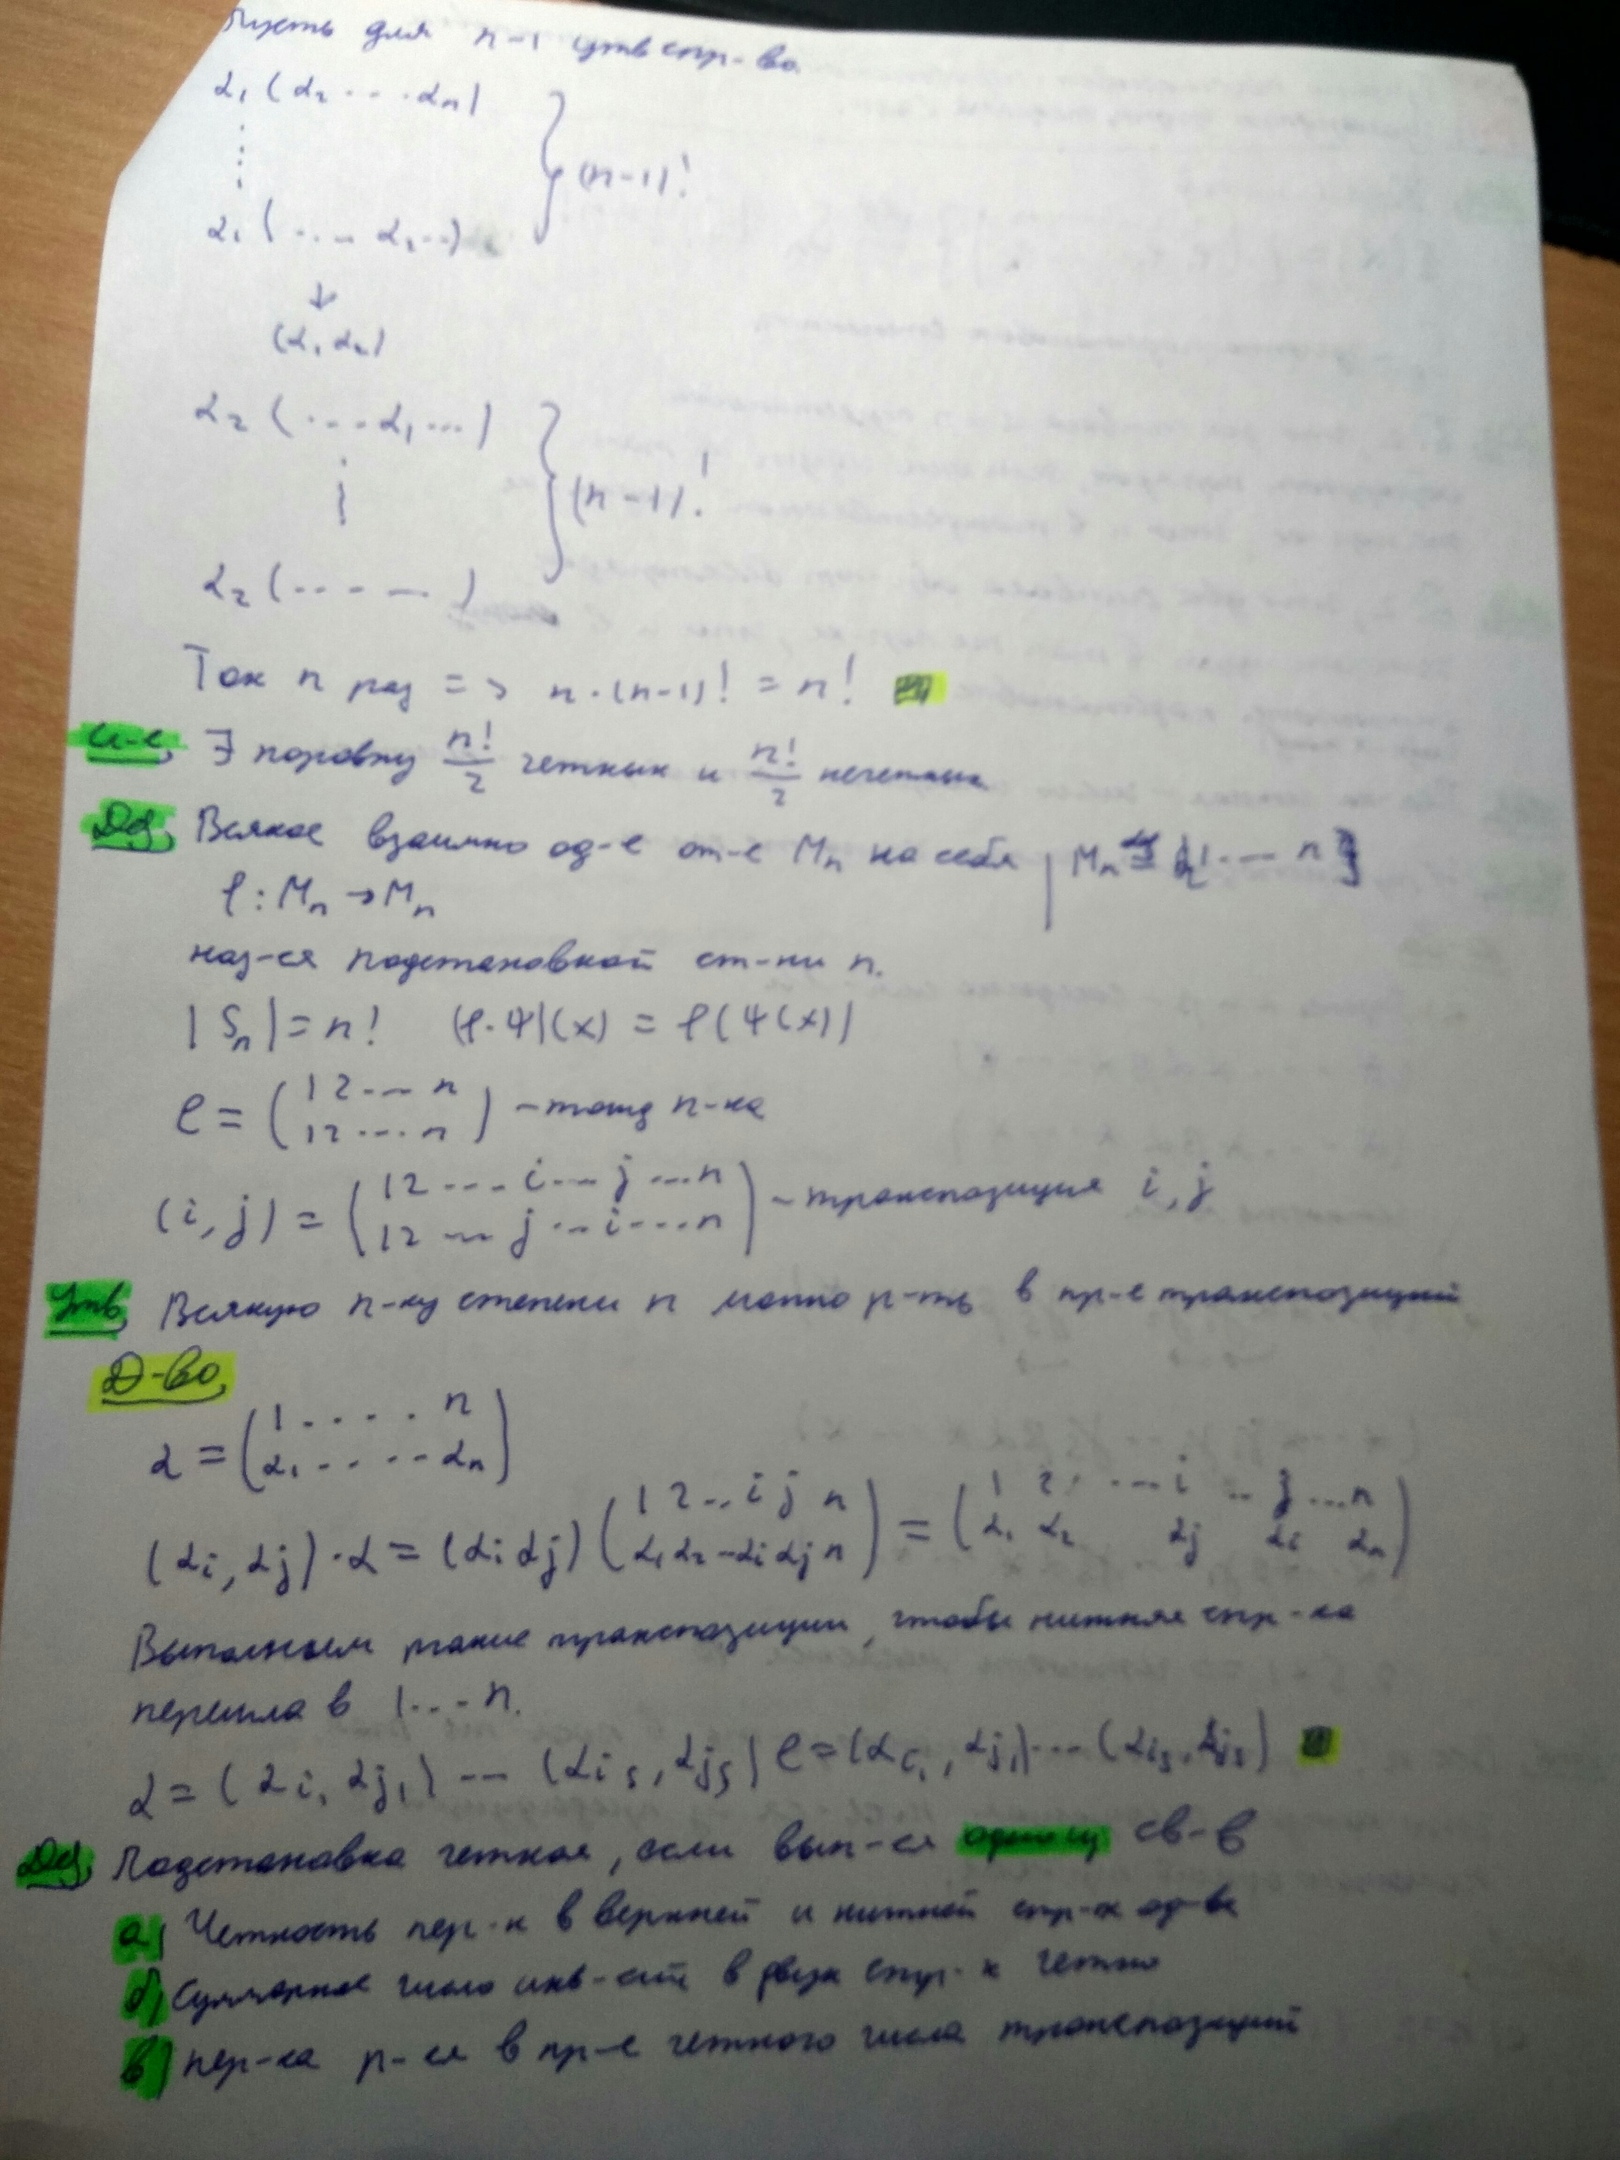 Пусть для n-1 утв спр-во
α₁ (α₂ ... αₙ)
⋮
α₁ (... α₂ ..)
} (n-1)!
↓
(α₁ α₂)
α₂ (... α₁ ...)
⋮
α₂ (... ...)
} (n-1)!
Так n раз => n·(n-1)! = n!
∃ поровну n!/2 четных и n!/2 нечетных
Def Всякое взаимно од-е от-е Mₙ на себя | Mₙ ≝ {1 ... n}
φ: Mₙ → Mₙ
наз-ся подстановкой ст-ни n.
|Sₙ| = n! (φ·ψ)(x) = φ(ψ(x))
e = (1 2 ... n / 1 2 ... n) - тожд п-ка
(i, j) = (1 2 ... i ... j ... n / 1 2 ... j ... i ... n) - транспозиция i, j
Утв Всякую п-ку степени n можно р-ть в пр-е транспозиций
Д-во
α = (1 .... n / α₁ .... αₙ)
(αi, αj)·α = (αi αj) (1 2 .. i j n / α₁ α₂ - αi αj n) = (1 2 ... i .. j ... n / α₁ α₂ αj αi αₙ)
Выполним такие транспозиции, чтобы нижняя стр-ка
перешла в 1...n.
α = (αi₁ αj₁) ... (αis, αjs) e = (αi₁, αj₁) ... (αis, αjs)
Def Подстановка четная, если вып-ся одному св-в
а) Четность пер-к в верхней и нижней стр-х од-ва
б) Суммарное число инв-сий в двух стр-х четно
в) пер-ка р-ся в пр-е четного числа транспозиций